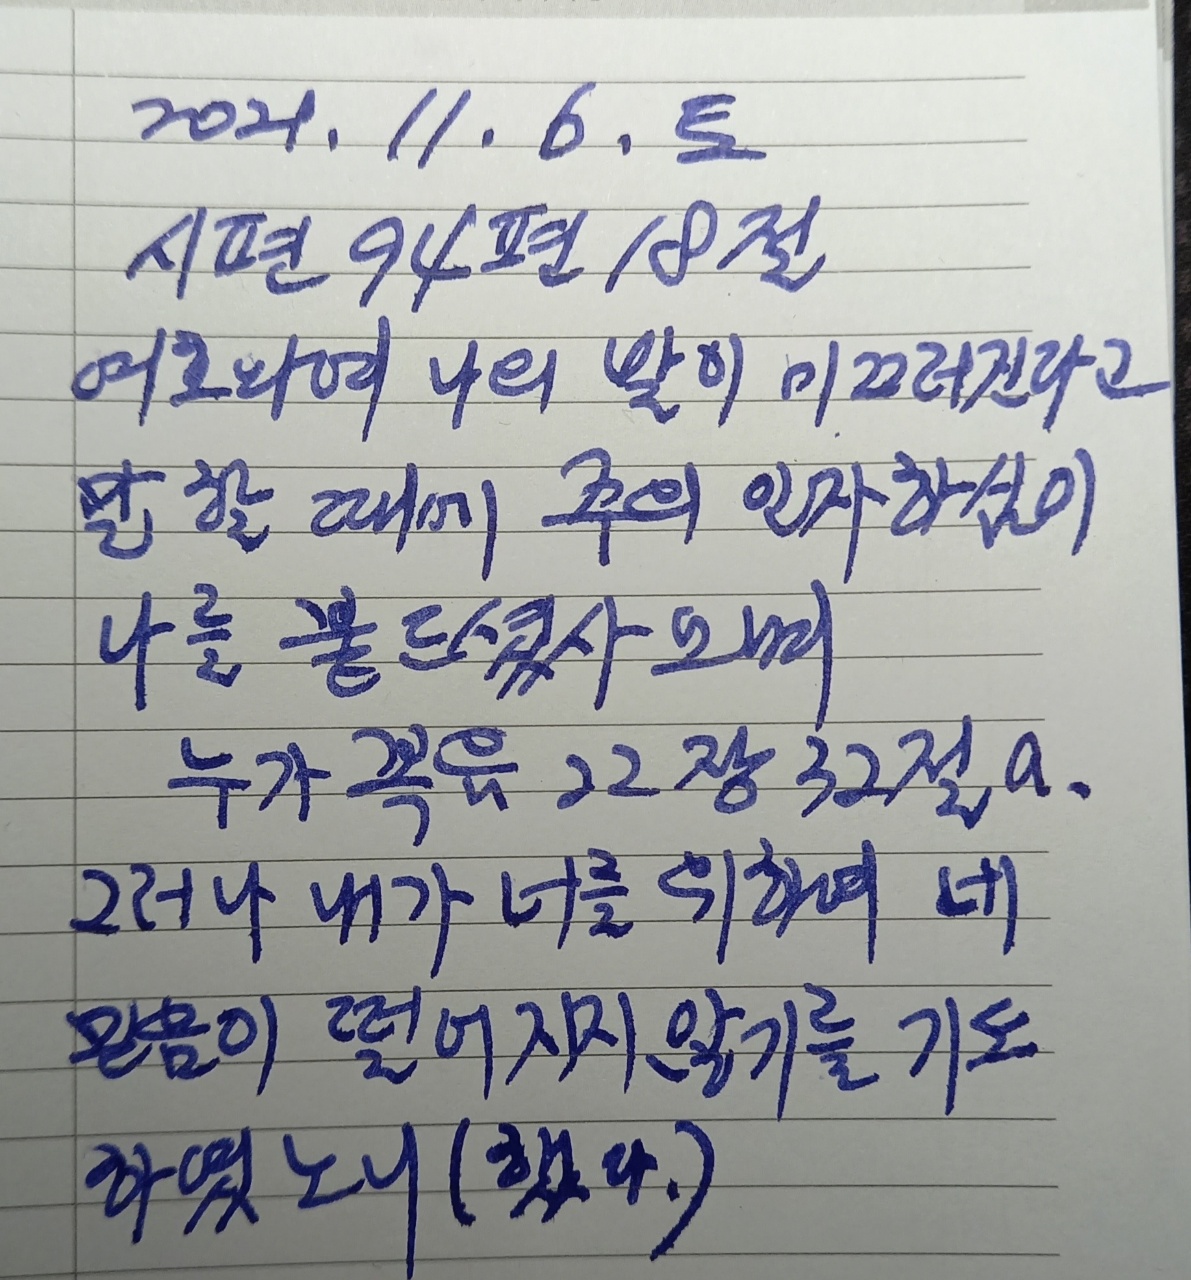 2021. 11. 6. 토
시편 94편 18절
여호와여 나의 발이 미끄러진다고
말 할 때에 주의 인자하심이
나를 붙드셨사오며
누가복음 22장 32절 a.
그러나 내가 너를 위하여 네
믿음이 떨어지지 않기를 기도
하였노니 (했다.)